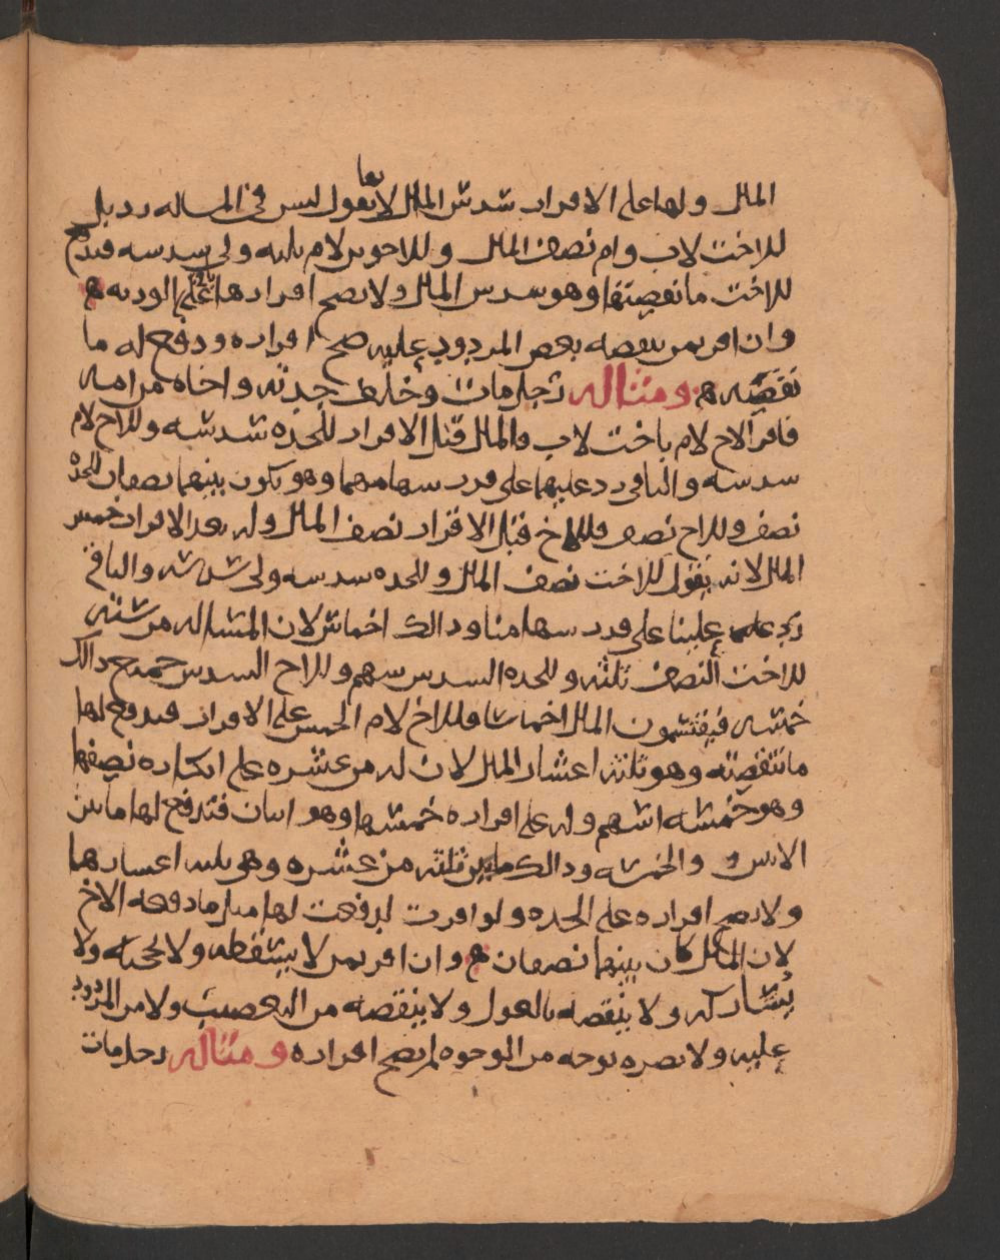 المال ولها على الاقرار سدس المال لانها تقول ليس في المساله رد بل
للاخت لاب وام نصف المال وللاخوين لام ثلثه ولي سدسه فتدفع
للاخت ما نقصتها وهو سدس المال ولا يصح اقرارها على الورثه
وان اقر بمن ينقصه بعض المردود عليه صح اقراره ودفع له ما
نقصه ومثاله رجل مات وخلف جدته واخاه من امه
فاقر الاخ لام باخت لاب فالمال قبل الاقرار للجده سدسه وللاخ لام
سدسه والباقي رد عليهما على قدر سهامهما وهو يكون بينهما نصفان للجده
نصف وللاخ نصف فللاخ قبل الاقرار نصف المال وله بعد الاقرار خمس
المال لانه يقول للاخت نصف المال وللجده سدسه ولي سدسه والباقي
رد علينا على قدر سهامنا وذالك اخماس لان المساله من سته
للاخت النصف ثلثه وللجده السدس سهم وللاخ السدس جميع ذالك
خمسه فيقتسمون المال اخماسا فللاخ لام الخمس على الاقرار فيدفع لها
ما نقصته وهو ثلثه اعشار المال لان له من عشره على انكاره نصفها
وهو خمسه اسهم وله على اقراره خمسها وهو اثنان فتدفع لها ما بين
الاثنين والخمسه وذالك ثلثه من عشره وهو ثلثه اعشارها
ولا يصح اقراره على الجده ولو اقرت لدفعت لها مثل ما دفعه الاخ
لان المال كان بينهما نصفان وان اقر بمن لا يسقطه ولا يحجبه ولا
يشاركه ولا ينقصه بالعول ولا ينقصه من التعصيب ولا من المردود
عليه ولا يضره بوجه من الوجوه لم يصح اقراره ومثاله رجل مات